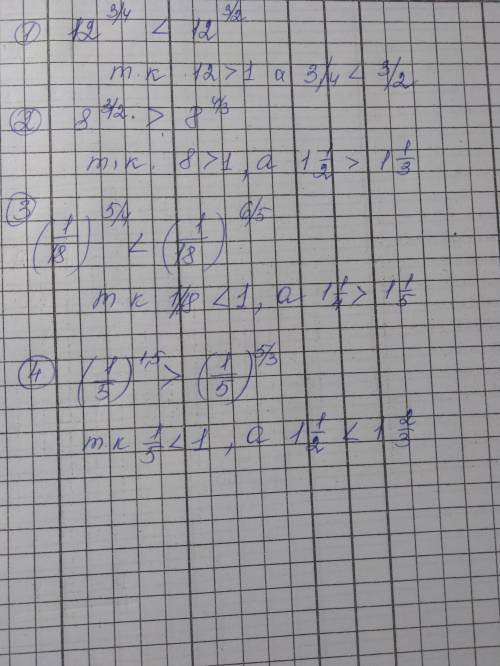 ① 12^3/4 < 12^3/2
т.к 12 > 1 а 3/4 < 3/2
② 8^3/2 > 8^4/3
т.к. 8 > 1, а 1 1/2 > 1 1/3
③ (1/18)^5/4 < (1/18)^6/5
т к 1/18 < 1, а 1 1/4 > 1 1/5
④ (1/5)^1,5 > (1/5)^5/3
т к 1/5 < 1, а 1 1/2 < 1 2/3